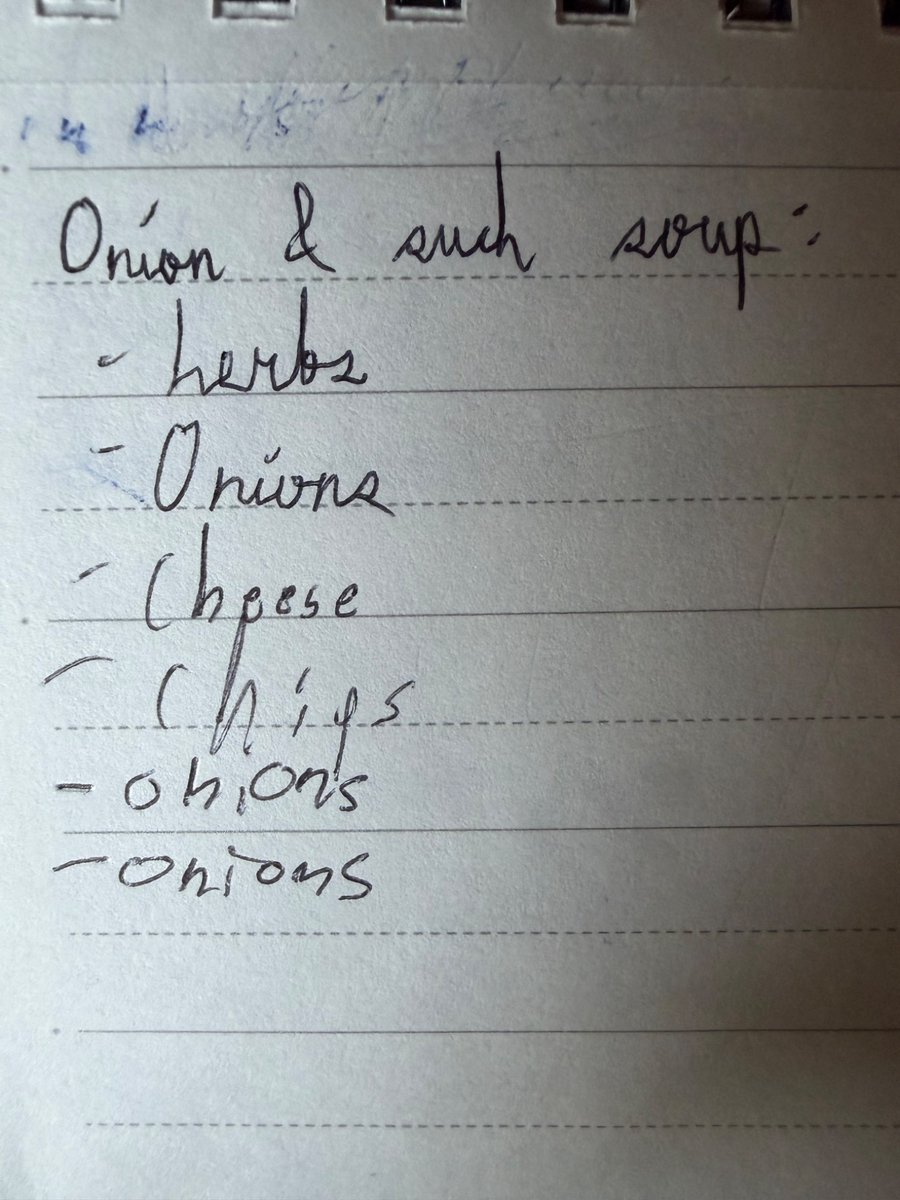 Onion & such soup:
- herbs
- Onions
- Cheese
- Chips
- onions
- onions